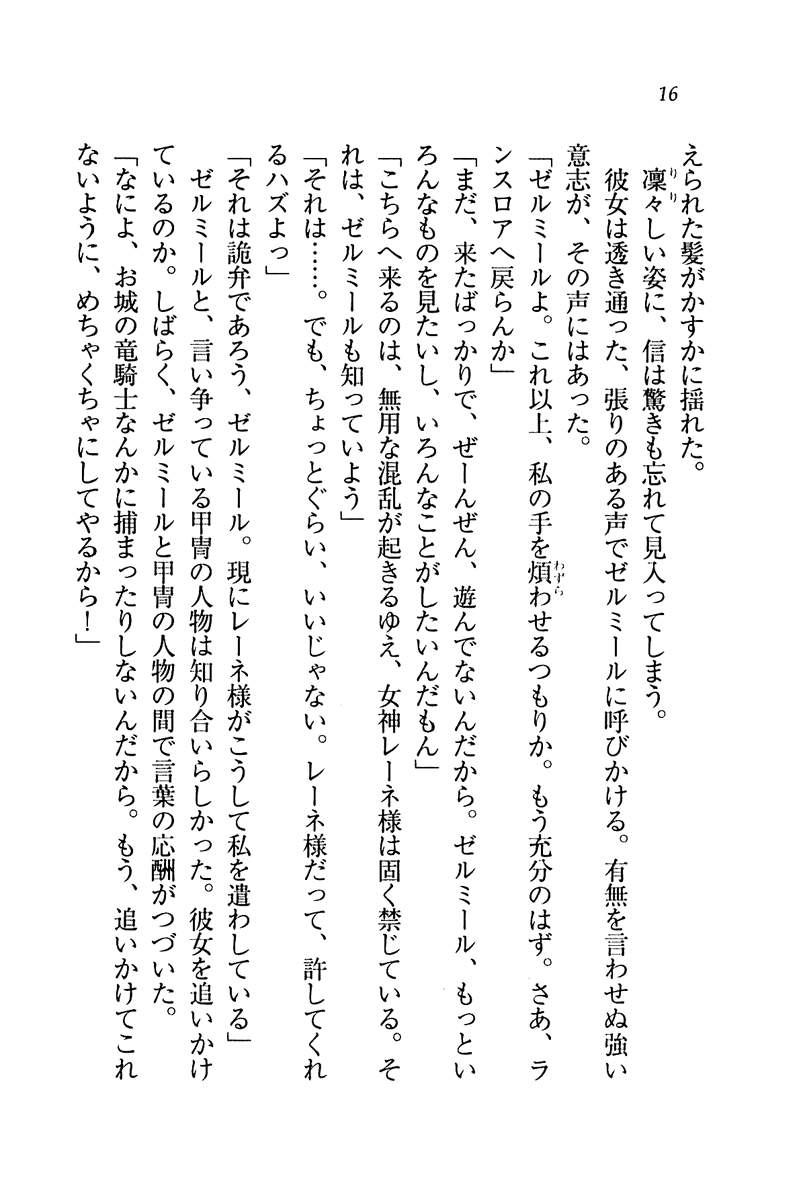 16
えられた髪がかすかに揺れた。
凜々しい姿に、信は驚きも忘れて見入ってしまう。
彼女は透き通った、張りのある声でゼルミールに呼びかける。有無を言わせぬ強い
意志が、その声にはあった。
「ゼルミールよ。これ以上、私の手を煩わせるつもりか。もう充分のはず。さあ、ラ
ンスロアへ戻らんか」
「まだ、来たばっかりで、ぜーんぜん、遊んでないんだから。ゼルミール、もっとい
ろんなものを見たいし、いろんなことがしたいんだもん」
「こちらへ来るのは、無用な混乱が起きるゆえ、女神レーネ様は固く禁じている。そ
れは、ゼルミールも知っていよう」
「それは……。でも、ちょっとぐらい、いいじゃない。レーネ様だって、許してくれ
るハズよっ」
「それは詭弁であろう、ゼルミール。現にレーネ様がこうして私を遣わしている」
ゼルミールと、言い争っている甲冑の人物は知り合いらしかった。彼女を追いかけ
ているのか。しばらく、ゼルミールと甲冑の人物の間で言葉の応酬がつづいた。
「なによ、お城の竜騎士なんかに捕まったりしないんだから。もう、追いかけてこれ
ないように、めちゃくちゃにしてやるから！」